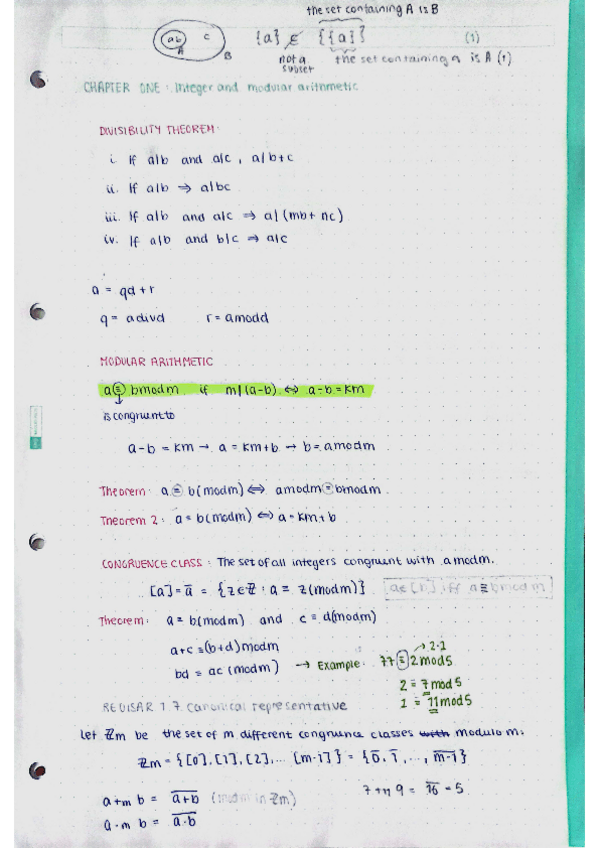 the set containing A is B
ab c A B {a} ∉ {{a}} (1)
not a subset the set containing a is A (1)
CHAPTER ONE: Integer and modular arithmetic
DIVISIBILITY THEOREM:
i. If a|b and a|c, a|b+c
ii. If a|b ⇒ a|bc
iii. If a|b and a|c ⇒ a|(mb+nc)
iv. If a|b and b|c ⇒ a|c
a = qd+r
q = a div d r = a mod d
MODULAR ARITHMETIC
a ≡ b mod m if m|(a-b) ⇔ a-b = km
is congruent to
a-b = km → a = km+b → b = a mod m
Theorem: a ≡ b(mod m) ⇔ a mod m = b mod m
Theorem 2: a = b(mod m) ⇔ a = km+b
CONGRUENCE CLASS: The set of all integers congruent with a mod m.
[a] = a̅ = {z∈ℤ : a = z(mod m)} a∈[b] iff a≡b mod m
Theorem: a = b(mod m) and c = d(mod m)
a+c = (b+d) mod m
bd = ac (mod m) → Example: 77 ≡ 2 mod 5
2 = 7 mod 5
1 = 11 mod 5
REVISAR 1.7 canonical representative
Let ℤm be the set of m different congruence classes with modulo m:
ℤm = {[0], [1], [2], ... [m-1]} = {0̅, 1̅, ..., m-1}
a +m b = a+b (mod m in ℤm)
a ·m b = a·b